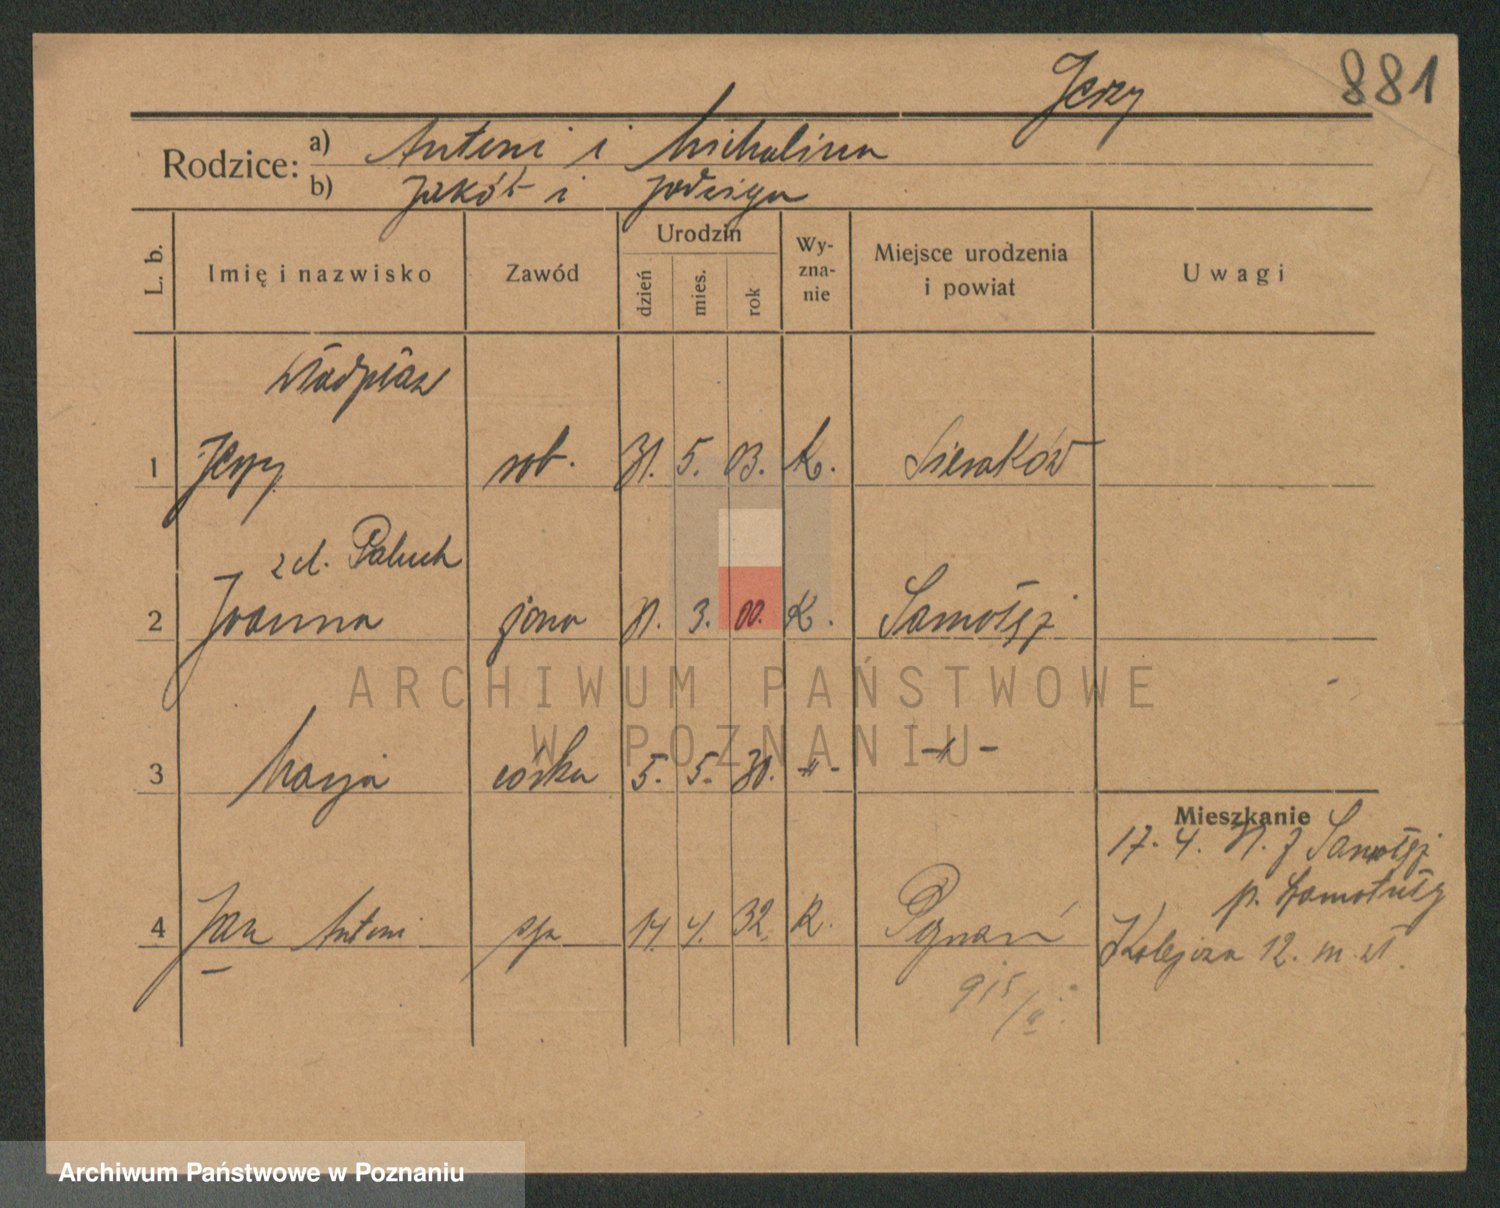 Jerzy 881
Rodzice: a) Antoni i Michalina
b) Jakób i Jadwiga
L. b. Imię i nazwisko Zawód Urodzin dzień mies. rok Wy-zna-nie Miejsce urodzenia i powiat Uwagi
1 Jerzy rob. 31. 5. 03. K. Sieraków
zd. Paluch
2 Joanna żona 31. 3. 00. K. Samołęż
ARCHIWUM PAŃSTWOWE
W POZNANIU
3 Marja córka 5. 5. 30. -"- -"-
Mieszkanie
17. 4. 31. z Samołęż
p. Szamotuły
4 Jan Antoni syn 14. 4. 32. K. Poznań
12. m.
915/
Archiwum Państwowe w Poznaniu